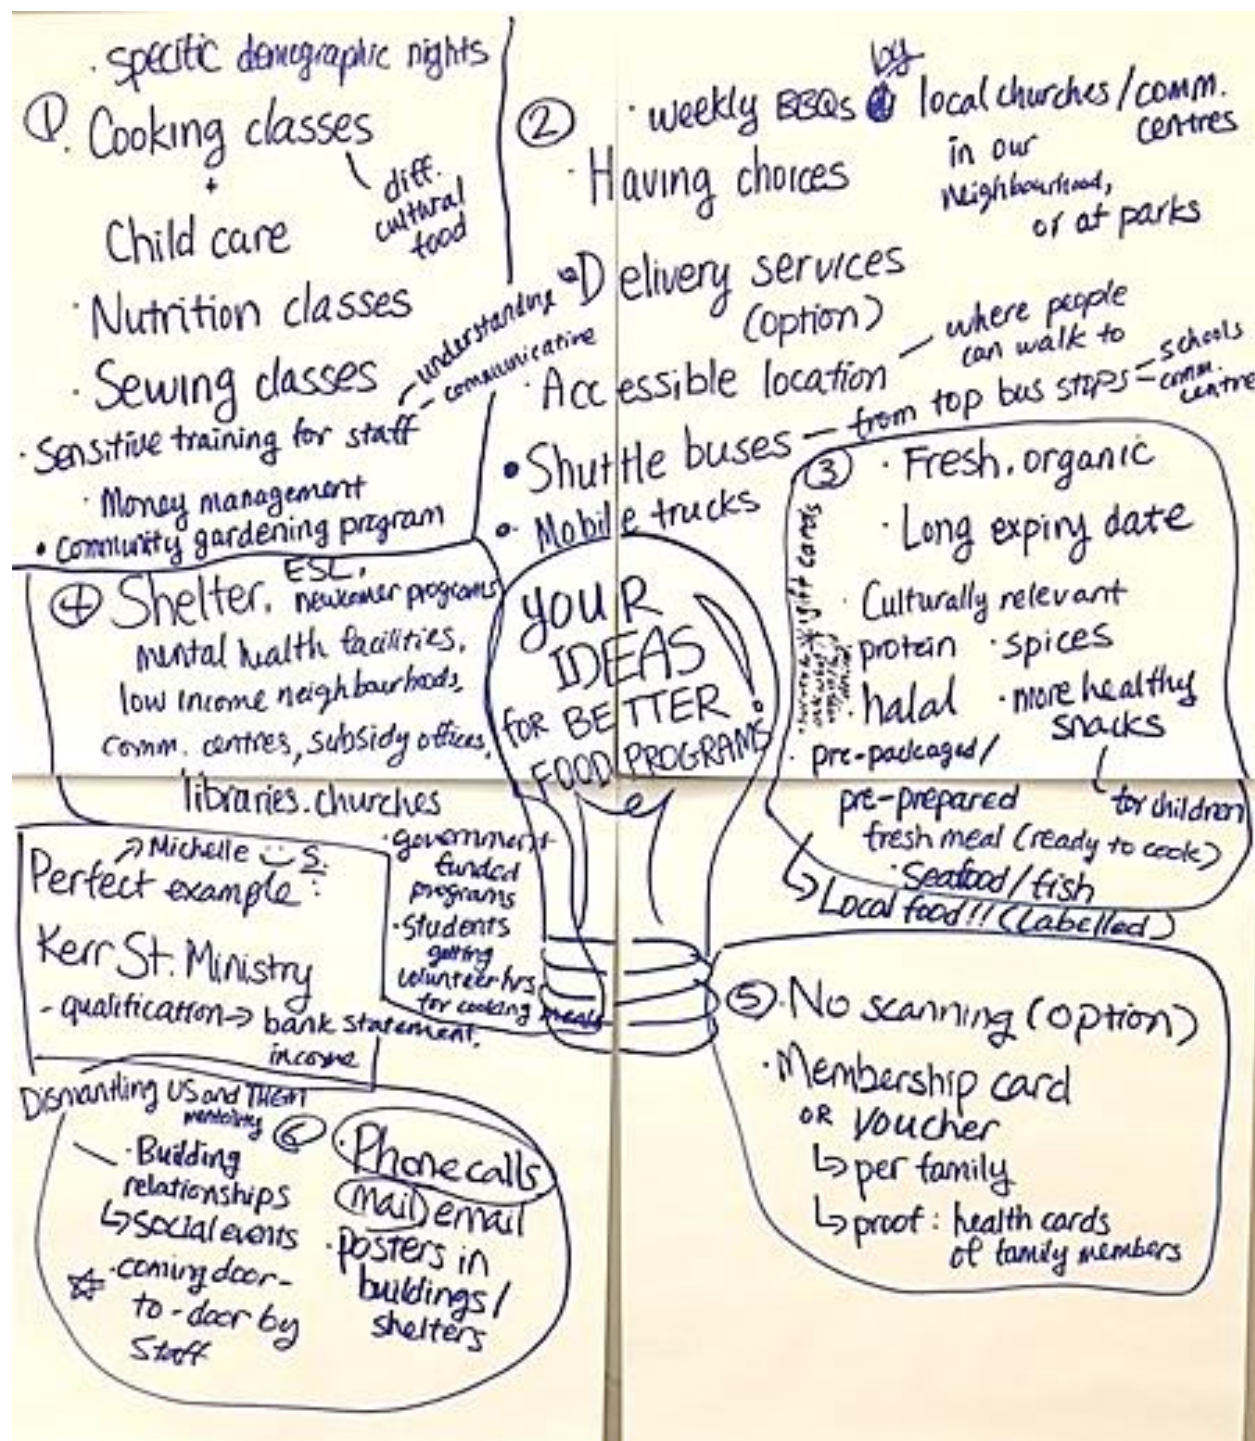 · specific demographic nights
① · Cooking classes
+
diff.
cultural
food
Child care
· Nutrition classes
· Sewing classes
· Sensitive training for staff
- understanding
- communicative
· Money management
· Community gardening program
②
· weekly BBQs by local churches / comm.
centres
in our
neighbourhood,
or at parks
· Having choices
· Delivery services
(option)
· Accessible location - where people
can walk to
· Shuttle buses - from top bus stops - schools
- comm.
centre
· Mobile trucks
YOUR
IDEAS
FOR BETTER
FOOD PROGRAMS
③ · Fresh. organic
· Long expiry date
· Culturally relevant
protein · spices
· halal · more healthy
snacks
for children
* gift cards
· pre-packaged/
pre-prepared
fresh meal (ready to cook)
· Seafood/fish
↳ Local food!! (Labelled)
④ Shelter. ESL,
newcomer programs
mental health facilities,
low income neighbourhoods,
comm. centres, subsidy offices,
libraries. churches
· government
funded
programs
· Students
getting
volunteer hrs
for cooking meals
↗ Michelle S.
Perfect example :
Kerr St. Ministry
- qualification → bank statement,
income
⑤ · No scanning (option)
· Membership card
OR Voucher
↳ per family
↳ proof : health cards
of family members
Dismantling US and THEM
mentality
· Building
relationships
↳ social events
☆ · coming door-
to-door by
Staff
⑥ · Phone calls
mail email
· posters in
buildings /
shelters